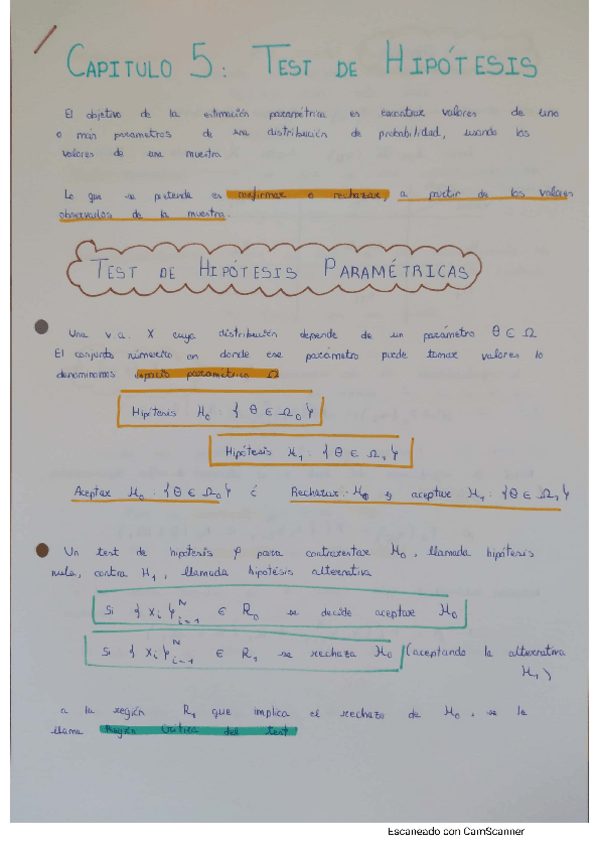 CAPITULO 5: TEST DE HIPÓTESIS
El objetivo de la estimación paramétrica es encontrar valores de uno
o más parametros de una distribución de probabilidad, usando los
valores de una muestra
Lo que se pretende es confirmar o rechazar, a partir de los valores
observados de la muestra.
TEST DE HIPÓTESIS PARAMÉTRICAS
Una v a. X cuya distribución depende de un parámetro θ ∈ Ω
El conjunto númerico en donde ese parámetro puede tomar valores lo
denominamos espacio parametrico Ω
Hipótesis H₀ {θ ∈ Ω₀}
Hipótesis H₁ : {θ ∈ Ω₁}
Aceptar H₀ : {θ ∈ Ω₀} ó Rechazar H₀ y aceptar H₁ : {θ ∈ Ω₁}
Un test de hipotesis φ para contrarrestar H₀, llamada hipótesis
nula, contra H₁, llamada hipotésis alternativa
Si {xᵢ}ᵢ₌₁ᴺ ∈ R₀ se decide aceptar H₀
Si {xᵢ}ᵢ₌₁ᴺ ∈ R₁ se rechaza H₀ (aceptando la alternativa
H₁)
a la región R₁ que implica el rechazo de H₀, se la
llama Región Crítica del test
Escaneado con CamScanner